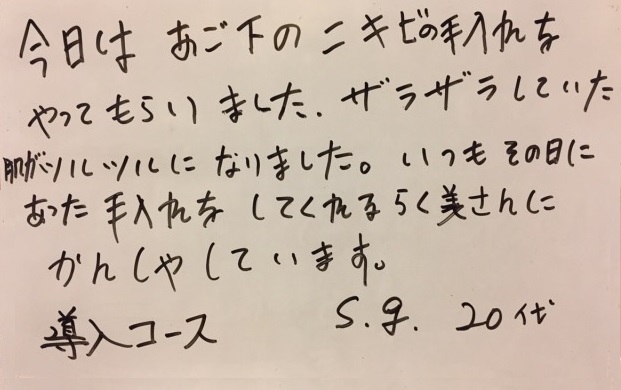 今日は あご下の ニキビの手入れを
やってもらいました. ザラザラしていた
肌がツルツルに なりました。いつも その日に
あった 手入れを してくれる らく美さんに
かんしゃしています。
導入コース S.g. 20代